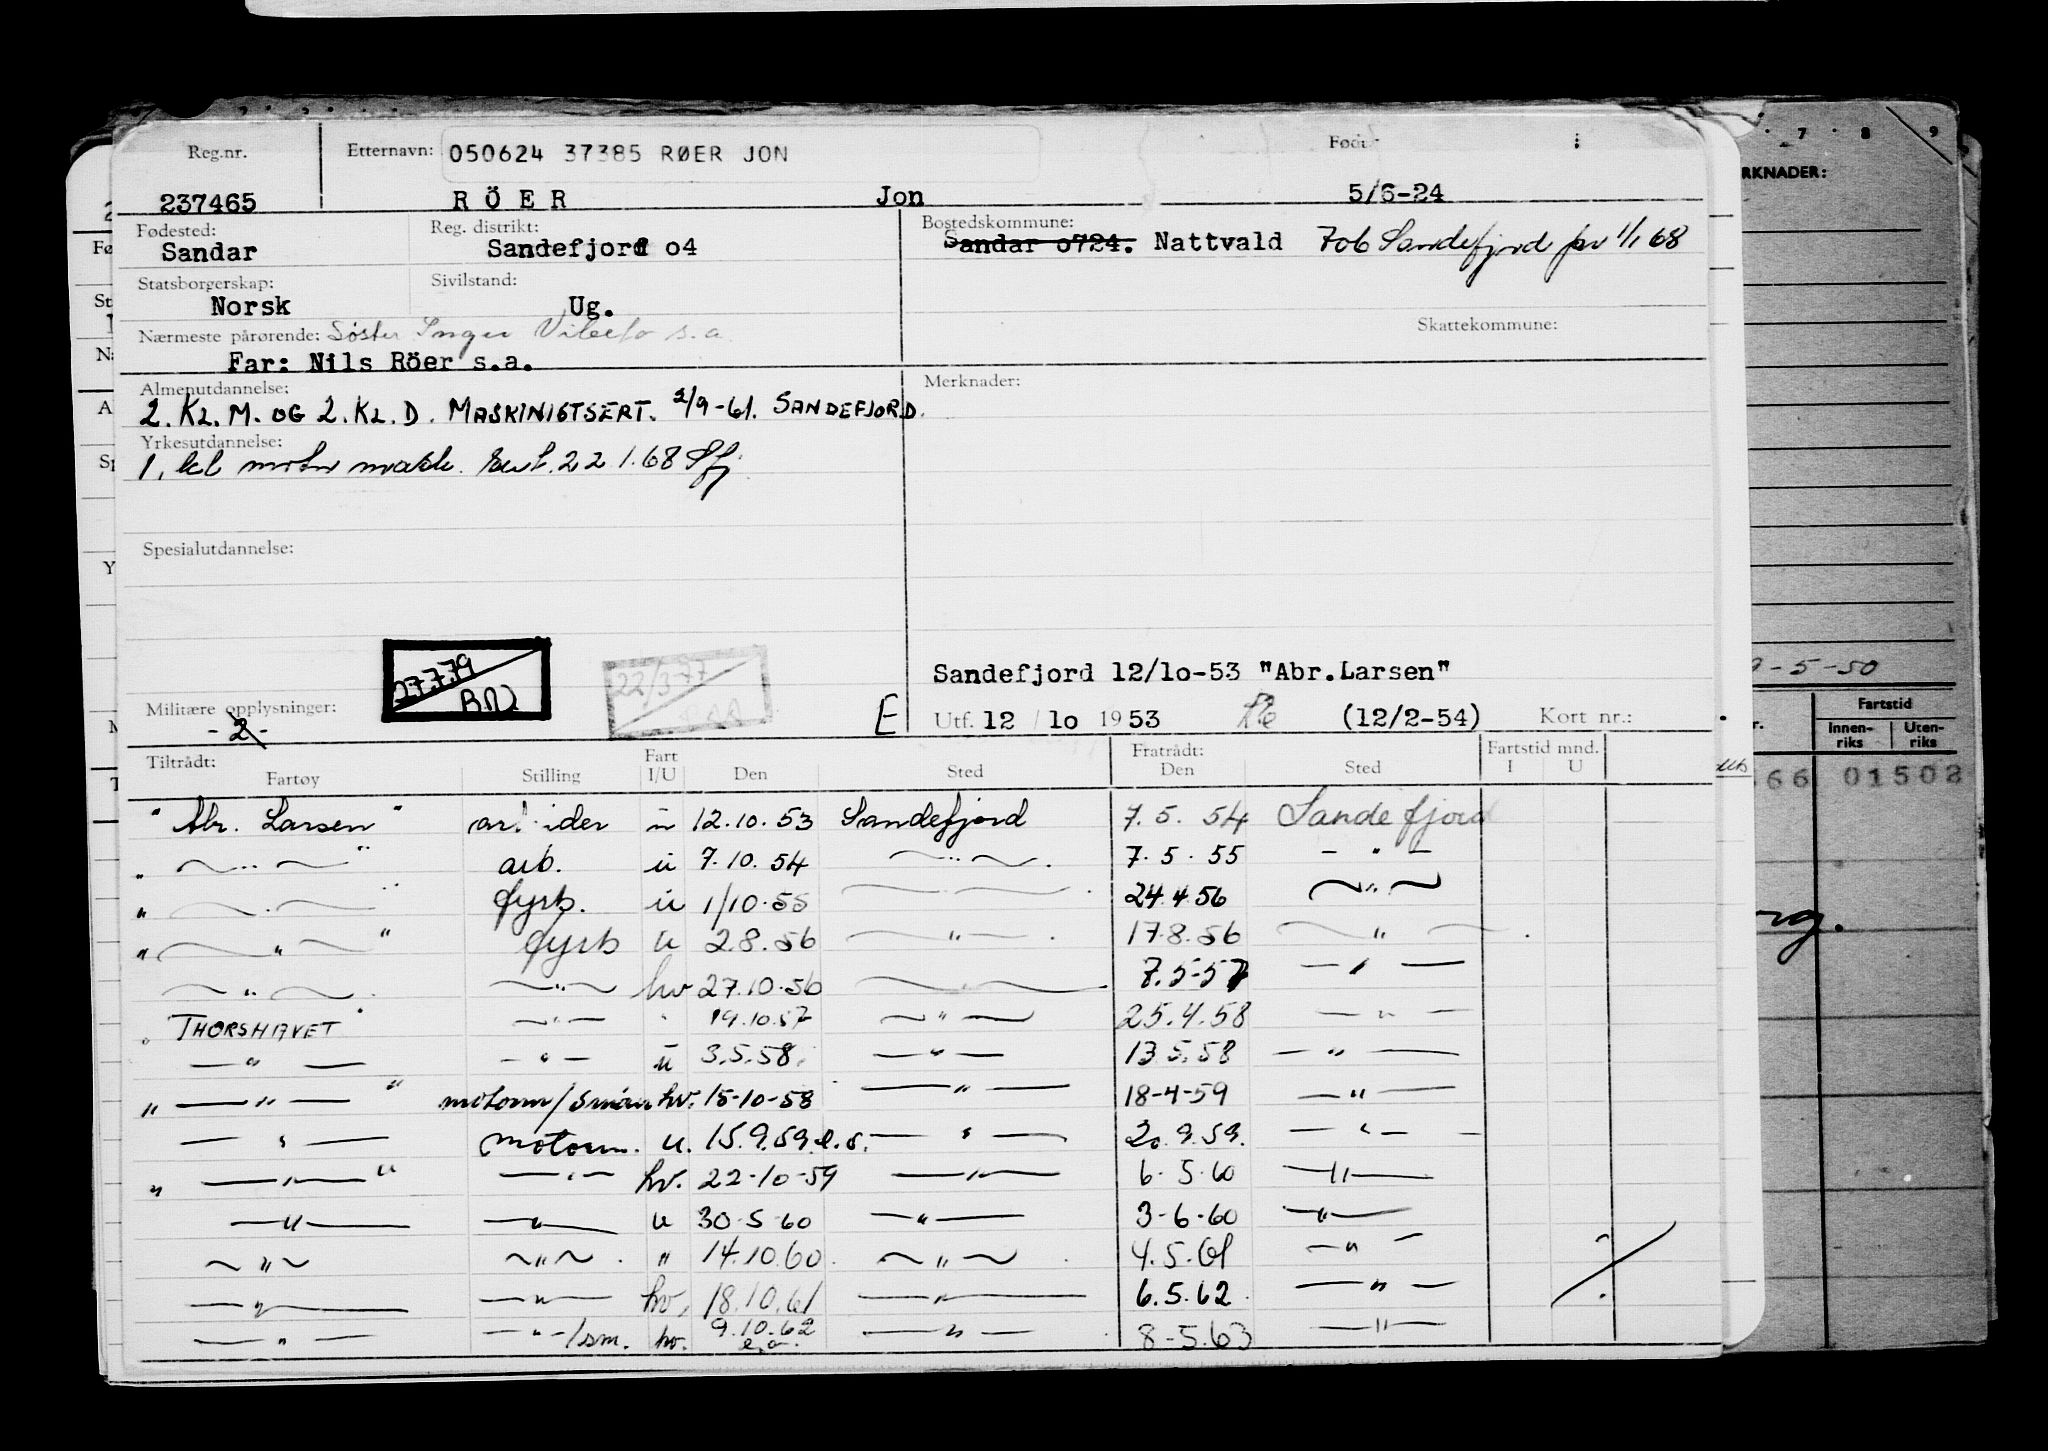 Reg.nr. Etternavn: 050624 37385 RØER JON Født
237465 RÖER Jon 5/6-24
Fødested: Reg. distrikt: Bostedskommune:
Sandar Sandefjord o4 Sandar o724. Nattvald 706 Sandefjord pr 1/1 68
Statsborgerskap: Sivilstand:
Norsk Ug.
Nærmeste pårørende: Søster Inger s.a. Skattekommune:
Far: Nils Röer s.a.
Almenutdannelse: Merknader:
2. KL. M. OG 2. KL. D. MASKINISTSERT. 2/9-61. SANDEFJORD.
Yrkesutdannelse:
1. kl motor mask. sert. 22 1.68 Sfj
Spesialutdannelse:
27.7.79
22/3-77
Sandefjord 12/1o-53 "Abr.Larsen"
Militære opplysninger: E Utf. 12 / 1o 1953 (12/2-54) Kort nr.:
-2-
Tiltrådt: Fart Fratrådt: Fartstid mnd.
Fartøy Stilling I/U Den Sted Den Sted I U
"Abr. Larsen" arbeider u 12.10.53 Sandefjord 7.5.54 Sandefjord
" — " — " arb. u 7.10.54 — " — 7.5.55 — " —
" — " — " fyrb. u 1/10.55 — " — 24.4.56 — " —
" — " — " fyrb u 2.8.56 — " — 17.8.56 — " —
— " — — " — hv 27.10.56 — " — 7.5-57 — " —
" THORSHAVET " — " — " 19.10.57 — " — 25.4.58 — " —
— " — — " — u 3.5.58. — " — 13.5.58 — " —
" — " — " motorm/smører hv. 15-10-58 — " — 18-4-59 — " —
— " — motorm. u. 15.9.59 e.o. — " — 20.9.59. — " —
" — " — " — " — hv. 22-10-59 — " — 6.5.60 — " —
— " — — " — u 30-5-60 — " — 3-6-60 — " —
— " — — " — " 14.10.60. — " — 4.5.61 — " —
— " — — " — hv. 18.10.61 — " — 6.5.62. — " —
— " — — " —/sm. hv. 9.10.62 — " — 8-5.63 — " —
e.o.
7 8 9
RKNADER:
-5-50
Fartstid
Innen-riks Uten-riks
66 01502
rg.